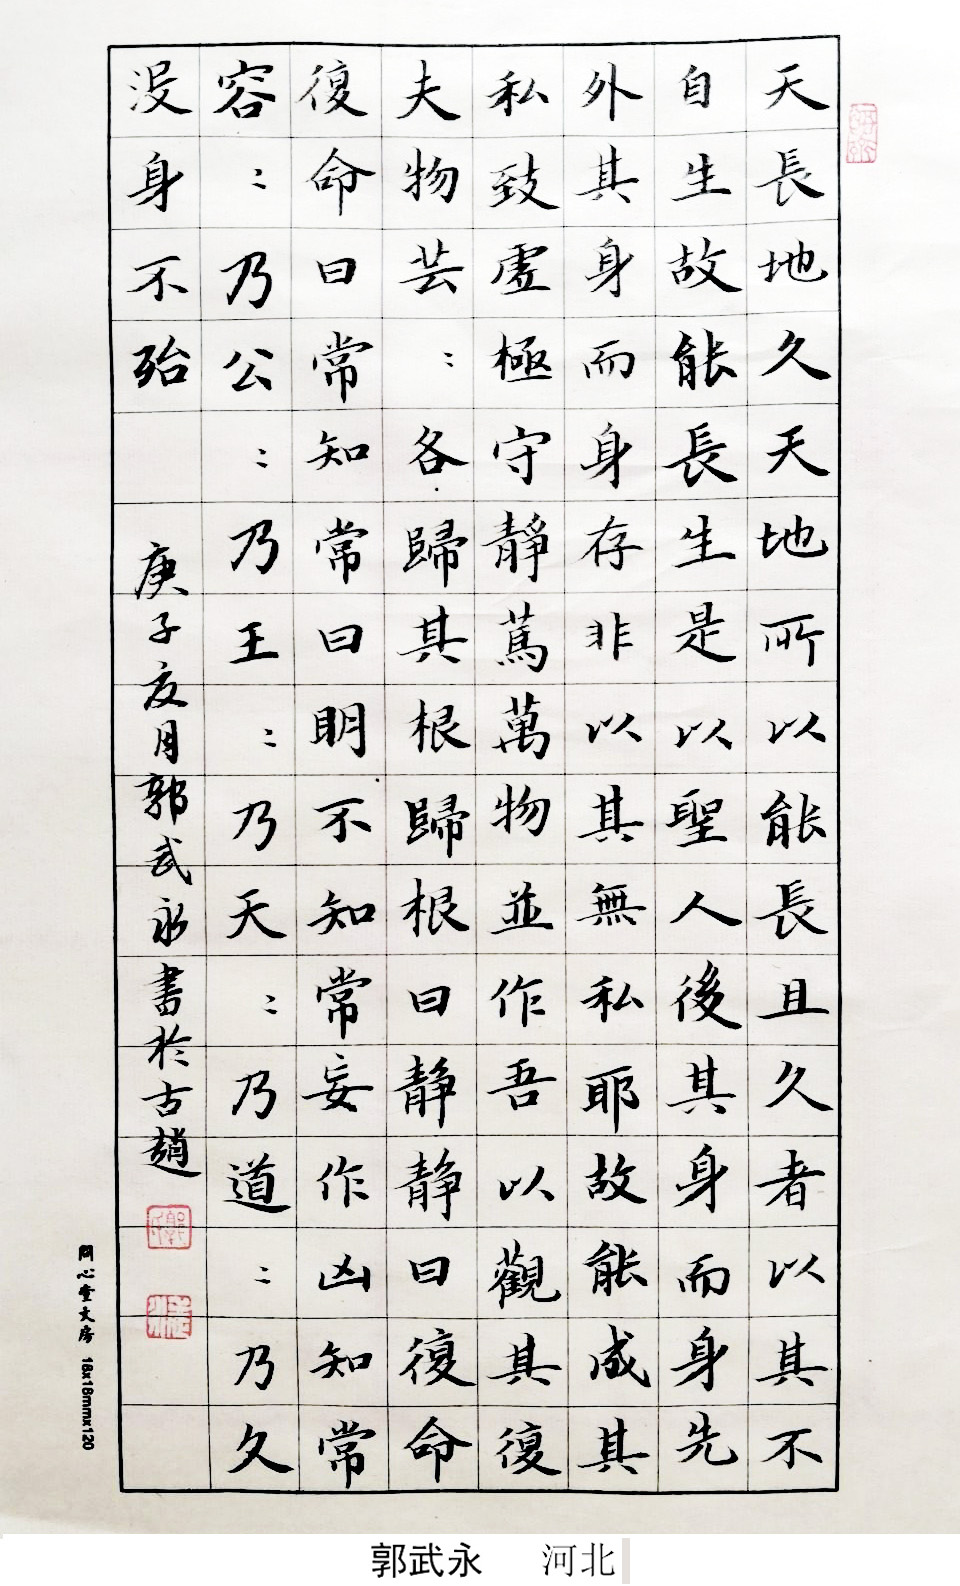 天長地久天地所以能長且久者以其不
自生故能長生是以聖人後其身而身先
外其身而身存非以其無私耶故能成其
私致虚極守靜篤萬物並作吾以觀其復
夫物芸〻各歸其根歸根曰静静曰復命
復命曰常知常曰明不知常妄作凶知常
容〻乃公〻乃王〻乃天〻乃道〻乃久
没身不殆
庚子月郭武永書於古趙
同心堂文房 18x18mmx120
郭武永 河北